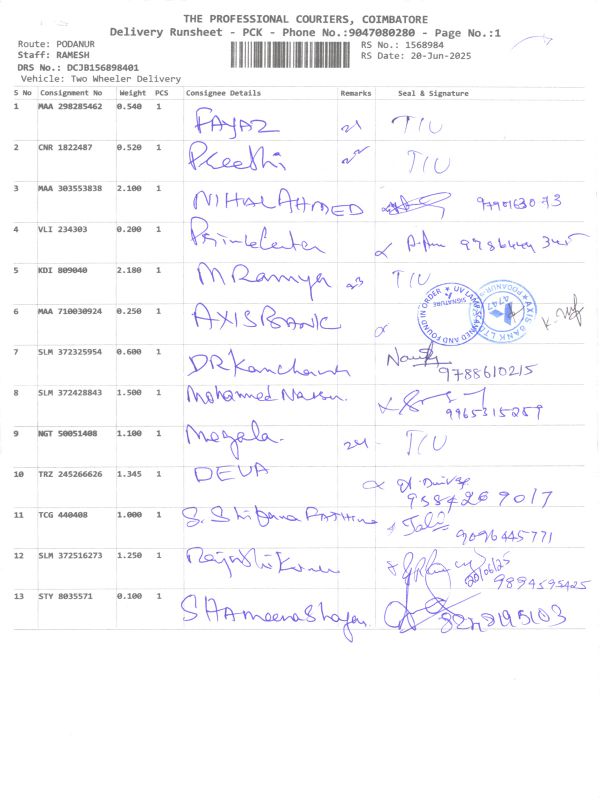 THE PROFESSIONAL COURIERS, COIMBATORE
Delivery Runsheet - PCK - Phone No.:9047080280 - Page No.:1
Route: PODANUR
Staff: RAMESH
DRS No.: DCJB156898401
Vehicle: Two Wheeler Delivery
RS No.: 1568984
RS Date: 20-Jun-2025
S No Consignment No Weight PCS Consignee Details Remarks Seal & Signature
1 MAA 298285462 0.540 1 FAYAZ 21 T/U
2 CNR 1822487 0.520 1 Preethi 22 T/U
3 MAA 303553838 2.100 1 NIHAL AHMED
4 VLI 234303 0.200 1 9786444345
5 KDI 809040 2.180 1 M Ramya 23 T/U
6 MAA 710030924 0.250 1 AXIS BANK
FOUND IN ORDER ★ UV LAMP SCANNED AND
SIGNATURE
AXIS BANK LTD. ★ PODANUR
4747
7 SLM 372325954 0.600 1 DR Kanchana 9788610215
8 SLM 372428843 1.500 1 Mohammed 9965315259
9 NGT 50051408 1.100 1 Megala. 24 T/U
10 TRZ 245266626 1.345 1 DEVA 9584269017
11 TCG 440408 1.000 1 S. 9096445771
12 SLM 372516273 1.250 1 20/06/25
9894595425
13 STY 8035571 0.100 1 SHAmeena